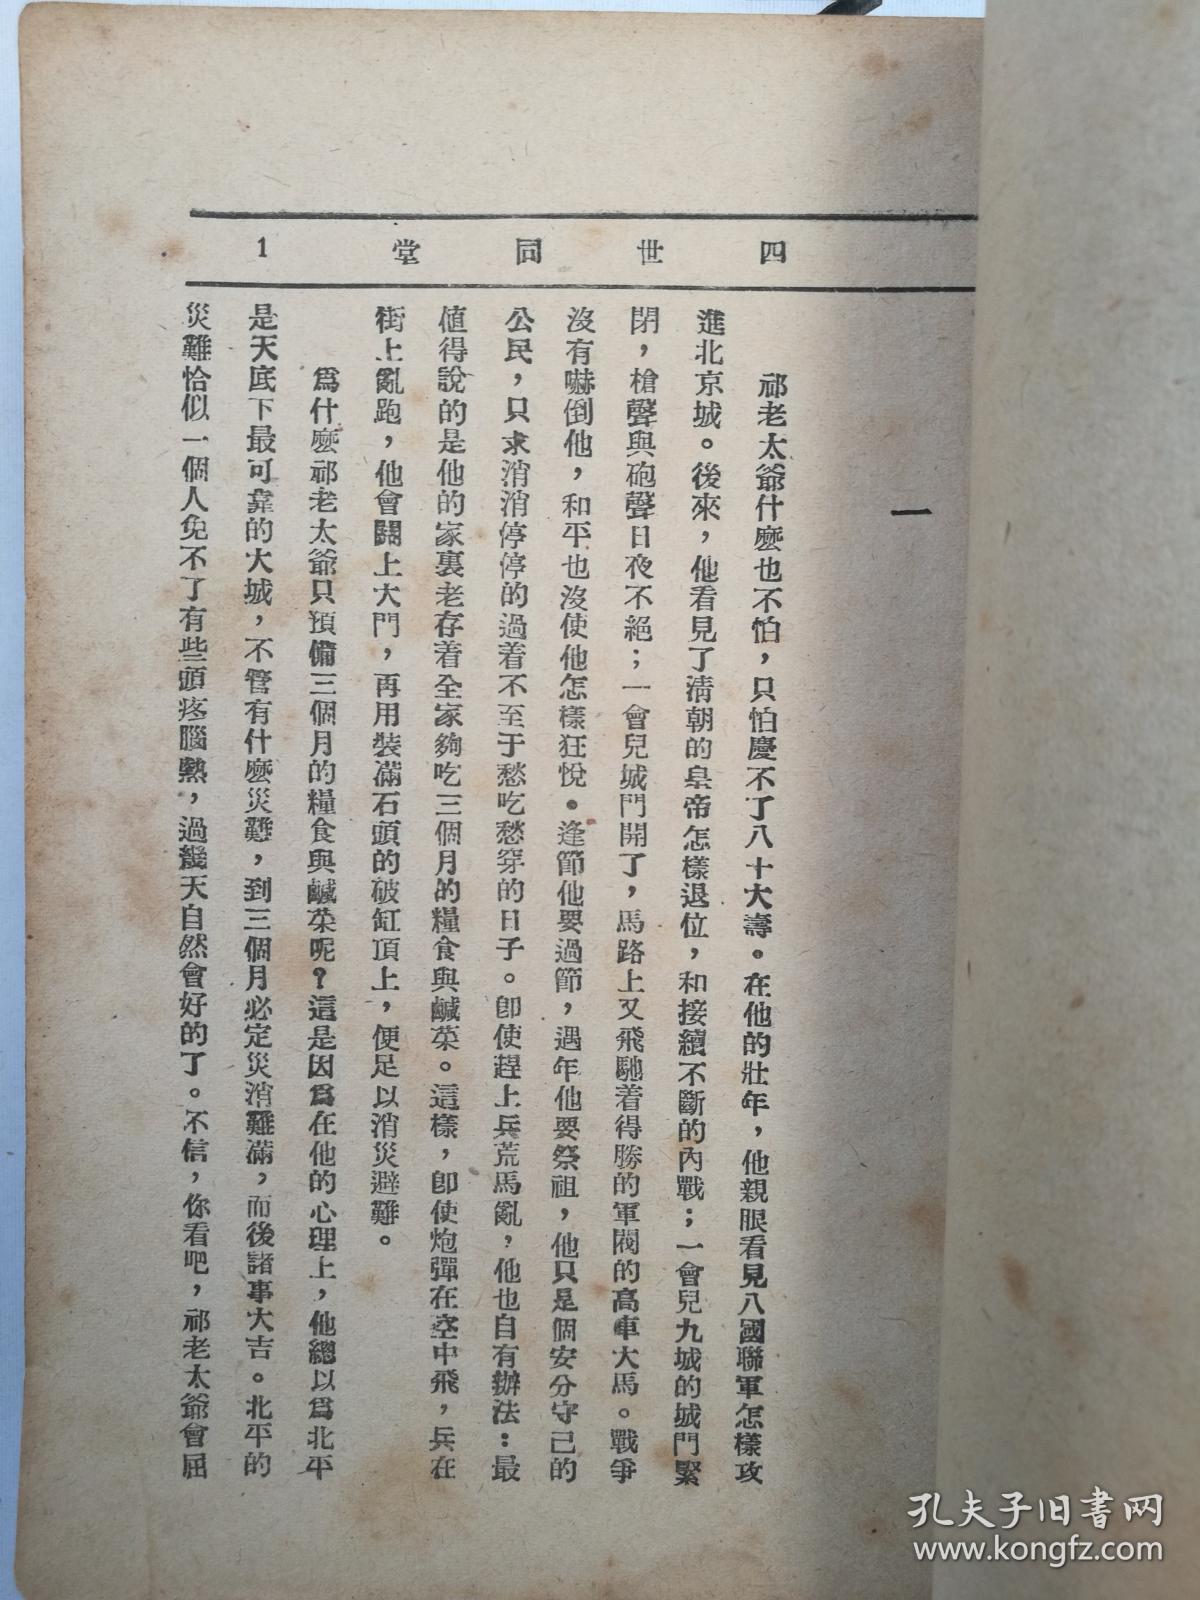 四世同堂 1
一
祁老太爺什麼也不怕，只怕慶不了八十大壽。在他的壯年，他親眼看見八國聯軍怎樣攻
進北京城。後來，他看見了清朝的皇帝怎樣退位，和接續不斷的內戰；一會兒九城的城門緊
閉，槍聲與砲聲日夜不絕；一會兒城門開了，馬路上又飛馳着得勝的軍閥的高車大馬。戰爭
沒有嚇倒他，和平也沒使他怎樣狂悅。逢節他要過節，遇年他要祭祖，他只是個安分守己的
公民，只求消消停停的過着不至于愁吃愁穿的日子。卽使趕上兵荒馬亂，他也自有辦法：最
值得說的是他的家裏老存着全家夠吃三個月的糧食與鹹菜。這樣，卽使炮彈在空中飛，兵在
街上亂跑，他會關上大門，再用裝滿石頭的破缸頂上，便足以消災避難。
爲什麼祁老太爺只預備三個月的糧食與鹹菜呢？這是因爲在他的心理上，他總以爲北平
是天底下最可靠的大城，不管有什麼災難，到三個月必定災消難滿，而後諸事大吉。北平的
災難恰似一個人免不了有些頭疼腦熱，過幾天自然會好的了。不信，你看吧，祁老太爺會屈
孔夫子旧书网
www.kongfz.com